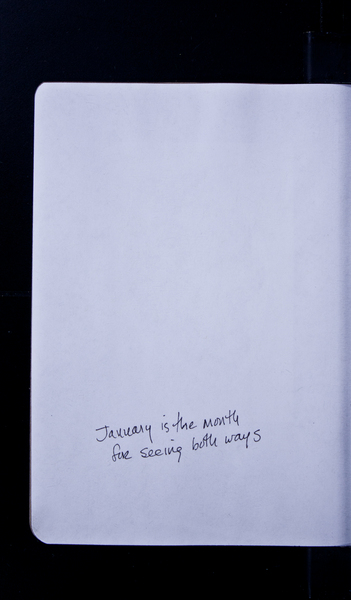 January is the month
for seeing both ways